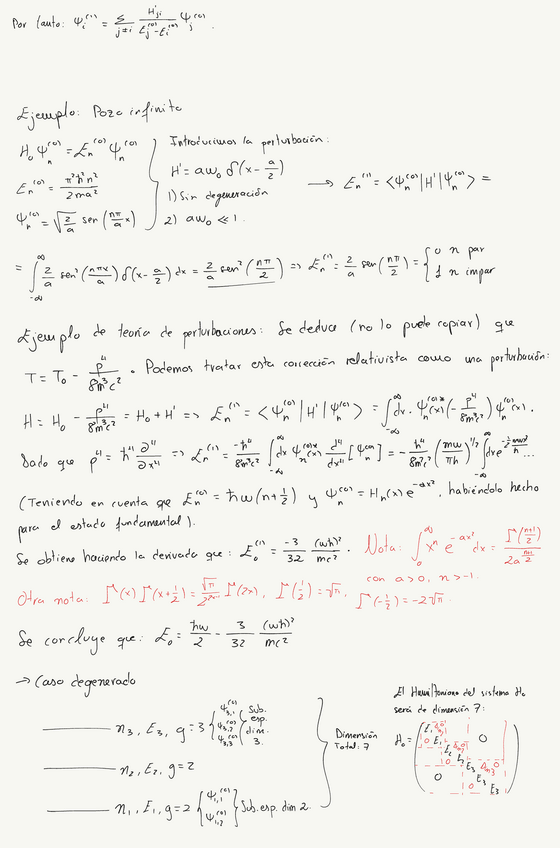 Por tanto: Ψ_i^(1) = Σ_{j≠i} H'_{ji} / (E_j^(0) - E_i^(0)) Ψ_j^(0).
Ejemplo: Pozo infinito
H_0 Ψ_n^(0) = E_n^(0) Ψ_n^(0)
E_n^(0) = π²ħ²n² / 2ma²
Ψ_n^(0) = √(2/a) sen(nπ/a x)
Introducimos la perturbación:
H' = aw_0 δ(x - a/2)
1) Sin degeneración
2) aw_0 ≪ 1.
→ E_n^(1) = <Ψ_n^(0)|H'|Ψ_n^(0)> =
= ∫_{-∞}^{∞} 2/a sen²(nπx/a) δ(x - a/2) dx = 2/a sen²(nπ/2) => E_n^(1) = 2/a sen(nπ/2) = { 0 n par
1 n impar
Ejemplo de teoría de perturbaciones: Se deduce (no lo pude copiar) que
T = T_0 - p⁴/8m³c² . Podemos tratar esta corrección relativista como una perturbación:
H = H_0 - p⁴/8m³c² = H_0 + H' => E_n^(1) = <Ψ_n^(0)|H'|Ψ_n^(0)> = ∫_{-∞}^{∞} dx · Ψ_n^(0)*(x) (-p⁴/8m³c²) Ψ_n^(0)(x).
Dado que p⁴ = ħ⁴ ∂⁴/∂x⁴ => E_n^(1) = -ħ⁴/8m³c² ∫_{-∞}^{∞} dx Ψ_n^(0)*(x) d⁴/dx⁴ [Ψ_n^(0)] = -ħ⁴/8m³c² (mw/πħ)^(1/2) ∫_{-∞}^{∞} dx e^(-1/2 mwx²/ħ) ...
(Teniendo en cuenta que E_n^(0) = ħw(n+1/2) y Ψ_n^(0) = H_n(x) e^(-ax²), habiéndolo hecho
para el estado fundamental).
Se obtiene haciendo la derivada que: E_0^(1) = -3/32 (wħ)²/mc² . Nota: ∫_0^∞ x^n e^(-ax²) dx = Γ((n+1)/2) / 2a^((n+1)/2)
con a>0, n>-1.
Otra nota: Γ(x) Γ(x+1/2) = √π/2^(2x-1) Γ(2x), Γ(1/2) = √π, Γ(-1/2) = -2√π.
Se concluye que: E_0 = ħw/2 - 3/32 (wħ)²/mc²
→ Caso degenerado
n_3, E_3, g=3 { Ψ_{3,1}^(0) Ψ_{3,2}^(0) Ψ_{3,3}^(0) { Sub. esp. dim. 3.
n_2, E_2, g=2
n_1, E_1, g=2 { Ψ_{1,1}^(0) Ψ_{1,2}^(0) } Sub. esp. dim 2.
Dimensión
Total: 7
El Hamiltoniano del sistema H_0
será de dimensión 7:
H_0 =
E_1
0 E_1 0
E_2
E_2
E_3
0 E_3
0 E_3